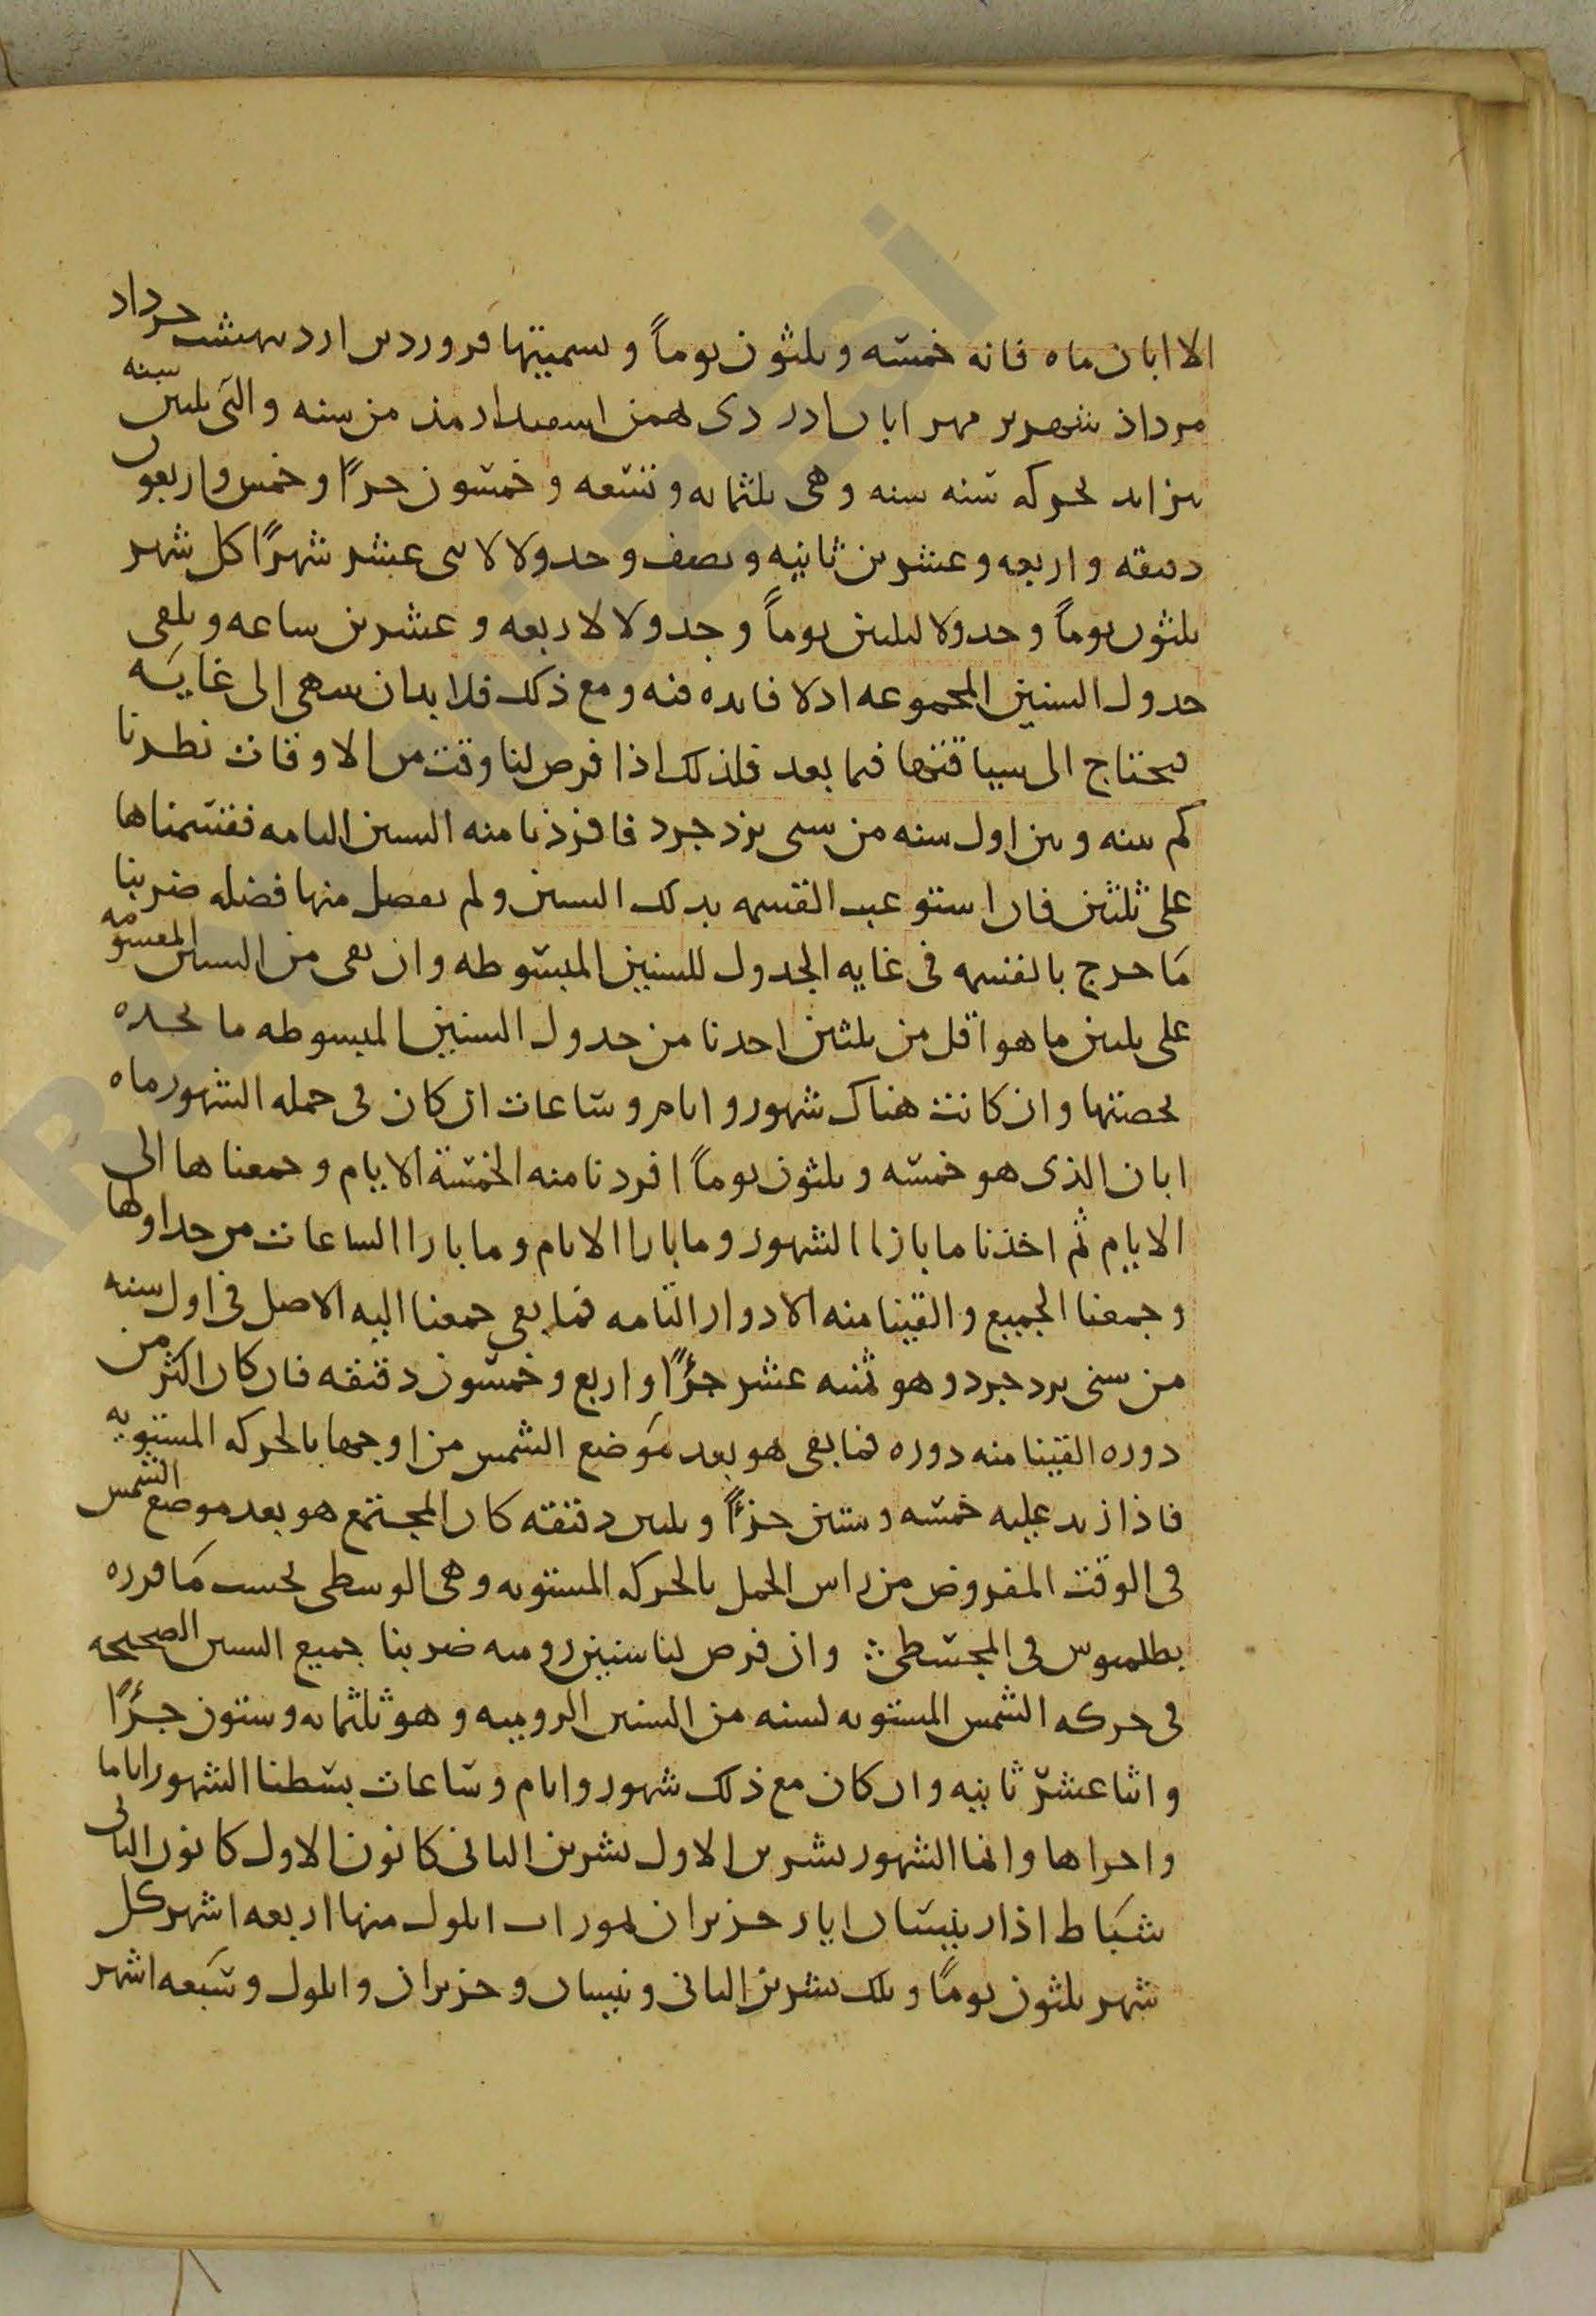 الا ابان ماه فانه خمسه وثلثون يوماً وتسميتها فروردين ارديبهشت خرداد
مرداذ شهرير مهر ابان اذر دى بهمن اسفندارمذ من سنه والى ثلثين سنه
بتزايد بحركه سنه سنه وهى ثلثمايه وتسعه وخمسون جزءًا وخمس واربعون
دقيقه واربعه وعشرين ثانيه ونصف وجدولا لاثنى عشر شهرًا كل شهر
ثلثون يوماً وجدولا لثلثين يوماً وجدولا لاربعه وعشرين ساعه ويلغى
جدول السنين المجموعه اذ لا فائده فيه ومع ذلك فلا بد ان ينتهى الى غايه
يحتاج الى سياقتها فيما بعد فلذلك اذا فرض لنا وقت من الاوقات نظرنا
كم سنه وبين اول سنه من سنى يزدجرد فافرذنا منه السنين التامه فقسمناها
على ثلثين فان استوعبت القسمه بذلك السنين ولم يفضل منها فضله ضربنا
ما خرج بالقسمه فى غايه الجدول للسنين المبسوطه وان بقى من السنين المقسومه
على ثلثين ما هو اقل من ثلثين اخذنا من جدول السنين المبسوطه ما نجده
بحصتها وان كانت هناك شهور وايام وساعات ان كان فى جمله الشهور ماه
ابان الذى هو خمسه وثلثون يوماً افردنا منه الخمسة الايام وجمعناها الى
الايام ثم اخذنا ما بازا الشهور وما بازا الايام وما بازا الساعات من جداولها
وجمعنا الجميع والقينا منه الادوار التامه فما بقى جمعنا اليه الاصل فى اول سنه
من سنى يزدجرد وهو ثمنيه عشر جزءًا واربع وخمسون دقيقه فان كان اكثر من
دوره القينا منه دوره فما بقى هو بعد موضع الشمس من اوجها بالحركه المستويه
فاذا زيد عليه خمسه وستين جزءًا وثلثين دقيقه كان المجتمع هو بعد موضع الشمس
فى الوقت المفروض من راس الحمل بالحركه المستويه وهى الوسطى بحسب ما قرره
بطلميوس فى المجسطى ∴ وان فرض لنا سنين روميه ضربنا جميع السنين الصحيحه
فى حركه الشمس المستويه لسنه من السنين الروميه وهو ثلثمايه وستون جزءًا
واثنا عشر ثانيه وان كان مع ذلك شهور وايام وساعات بسطنا الشهور اياما
واجزاها وانما الشهور تشرين الاول تشرين الثانى كانون الاول كانون الثانى
شباط اذار نيسان ايار حزيران تموز اب ايلول منها اربعه اشهر كل
شهر ثلثون يوماً وتلك تشرين الثانى ونيسان وحزيران وايلول وسبعه اشهر